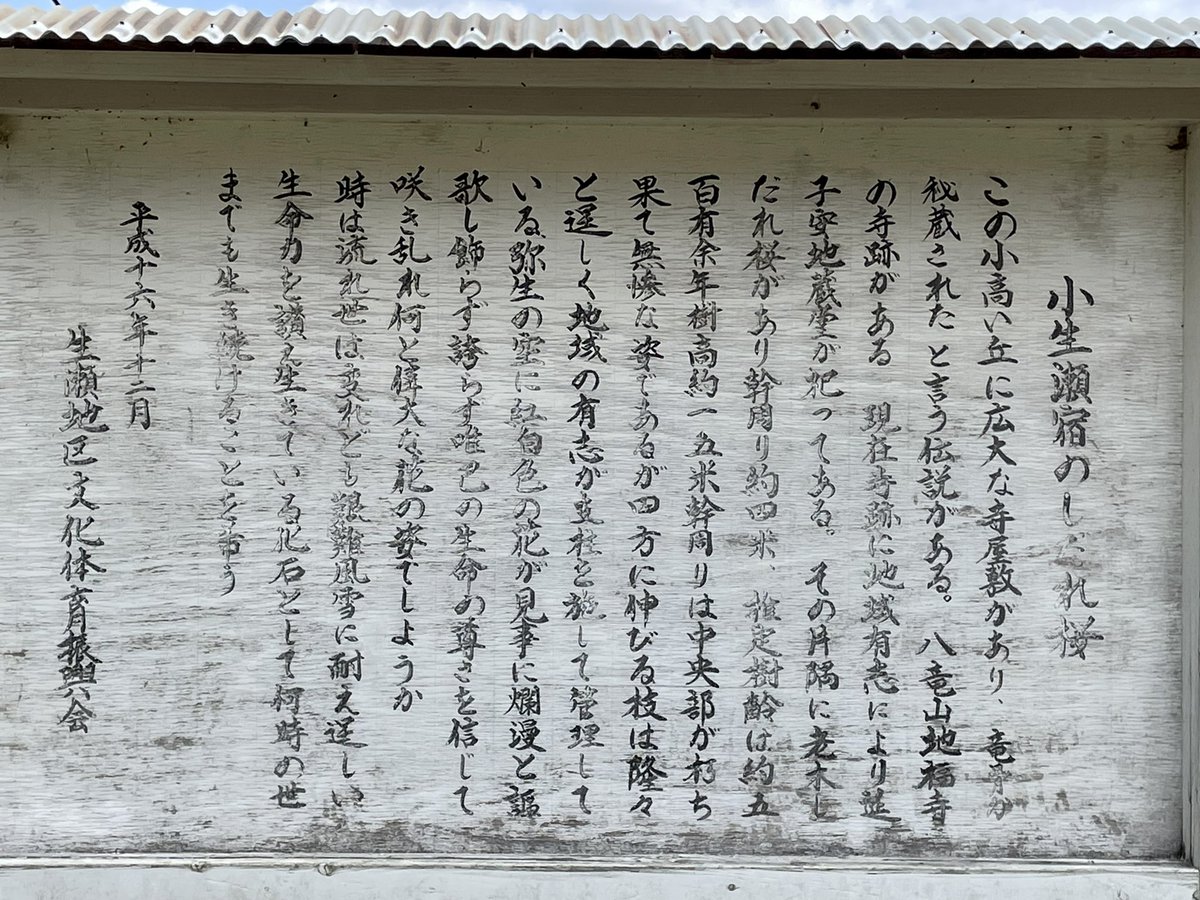 小生瀬宿のしだれ桜
この小高い丘に広大な寺屋敷があり、竜骨が
秘蔵されたと言う伝説がある。八竜山地福寺
の寺跡がある 現在寺跡に地域有志により延
子安地蔵堂が祀ってある。その片隅に老木し
だれ桜があり幹周り約四米、推定樹齢は約五
百有余年樹高約一五米幹周りは中央部が朽ち
果て無惨な姿であるが四方に伸びる枝は隆々
と逞しく地域の有志が支柱を施して管理して
いる弥生の空に紅白色の花が見事に爛漫と謳
歌し飾らず誇らず唯己の生命の尊さを信じて
咲き乱れ何と偉大な花の姿でしようか
時は流れ世は変れども艱難風雪に耐え逞しい
生命力を讃え生きている化石として何時の世
までも生き続けることを希う
平成十六年十二月
生瀬地区文化体育振興会